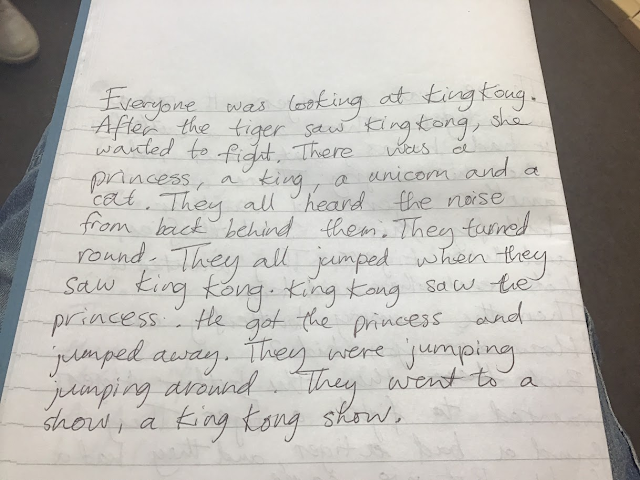 Everyone was looking at king kong.
After the tiger saw king kong, she
wanted to fight. There was a
princess, a king, a unicorn and a
cat. They all heard the noise
from back behind them. They turned
round. They all jumped when they
saw king kong. king kong saw the
princess. He got the princess and
jumped away. They were jumping
jumping around. They went to a
show, a king kong show.